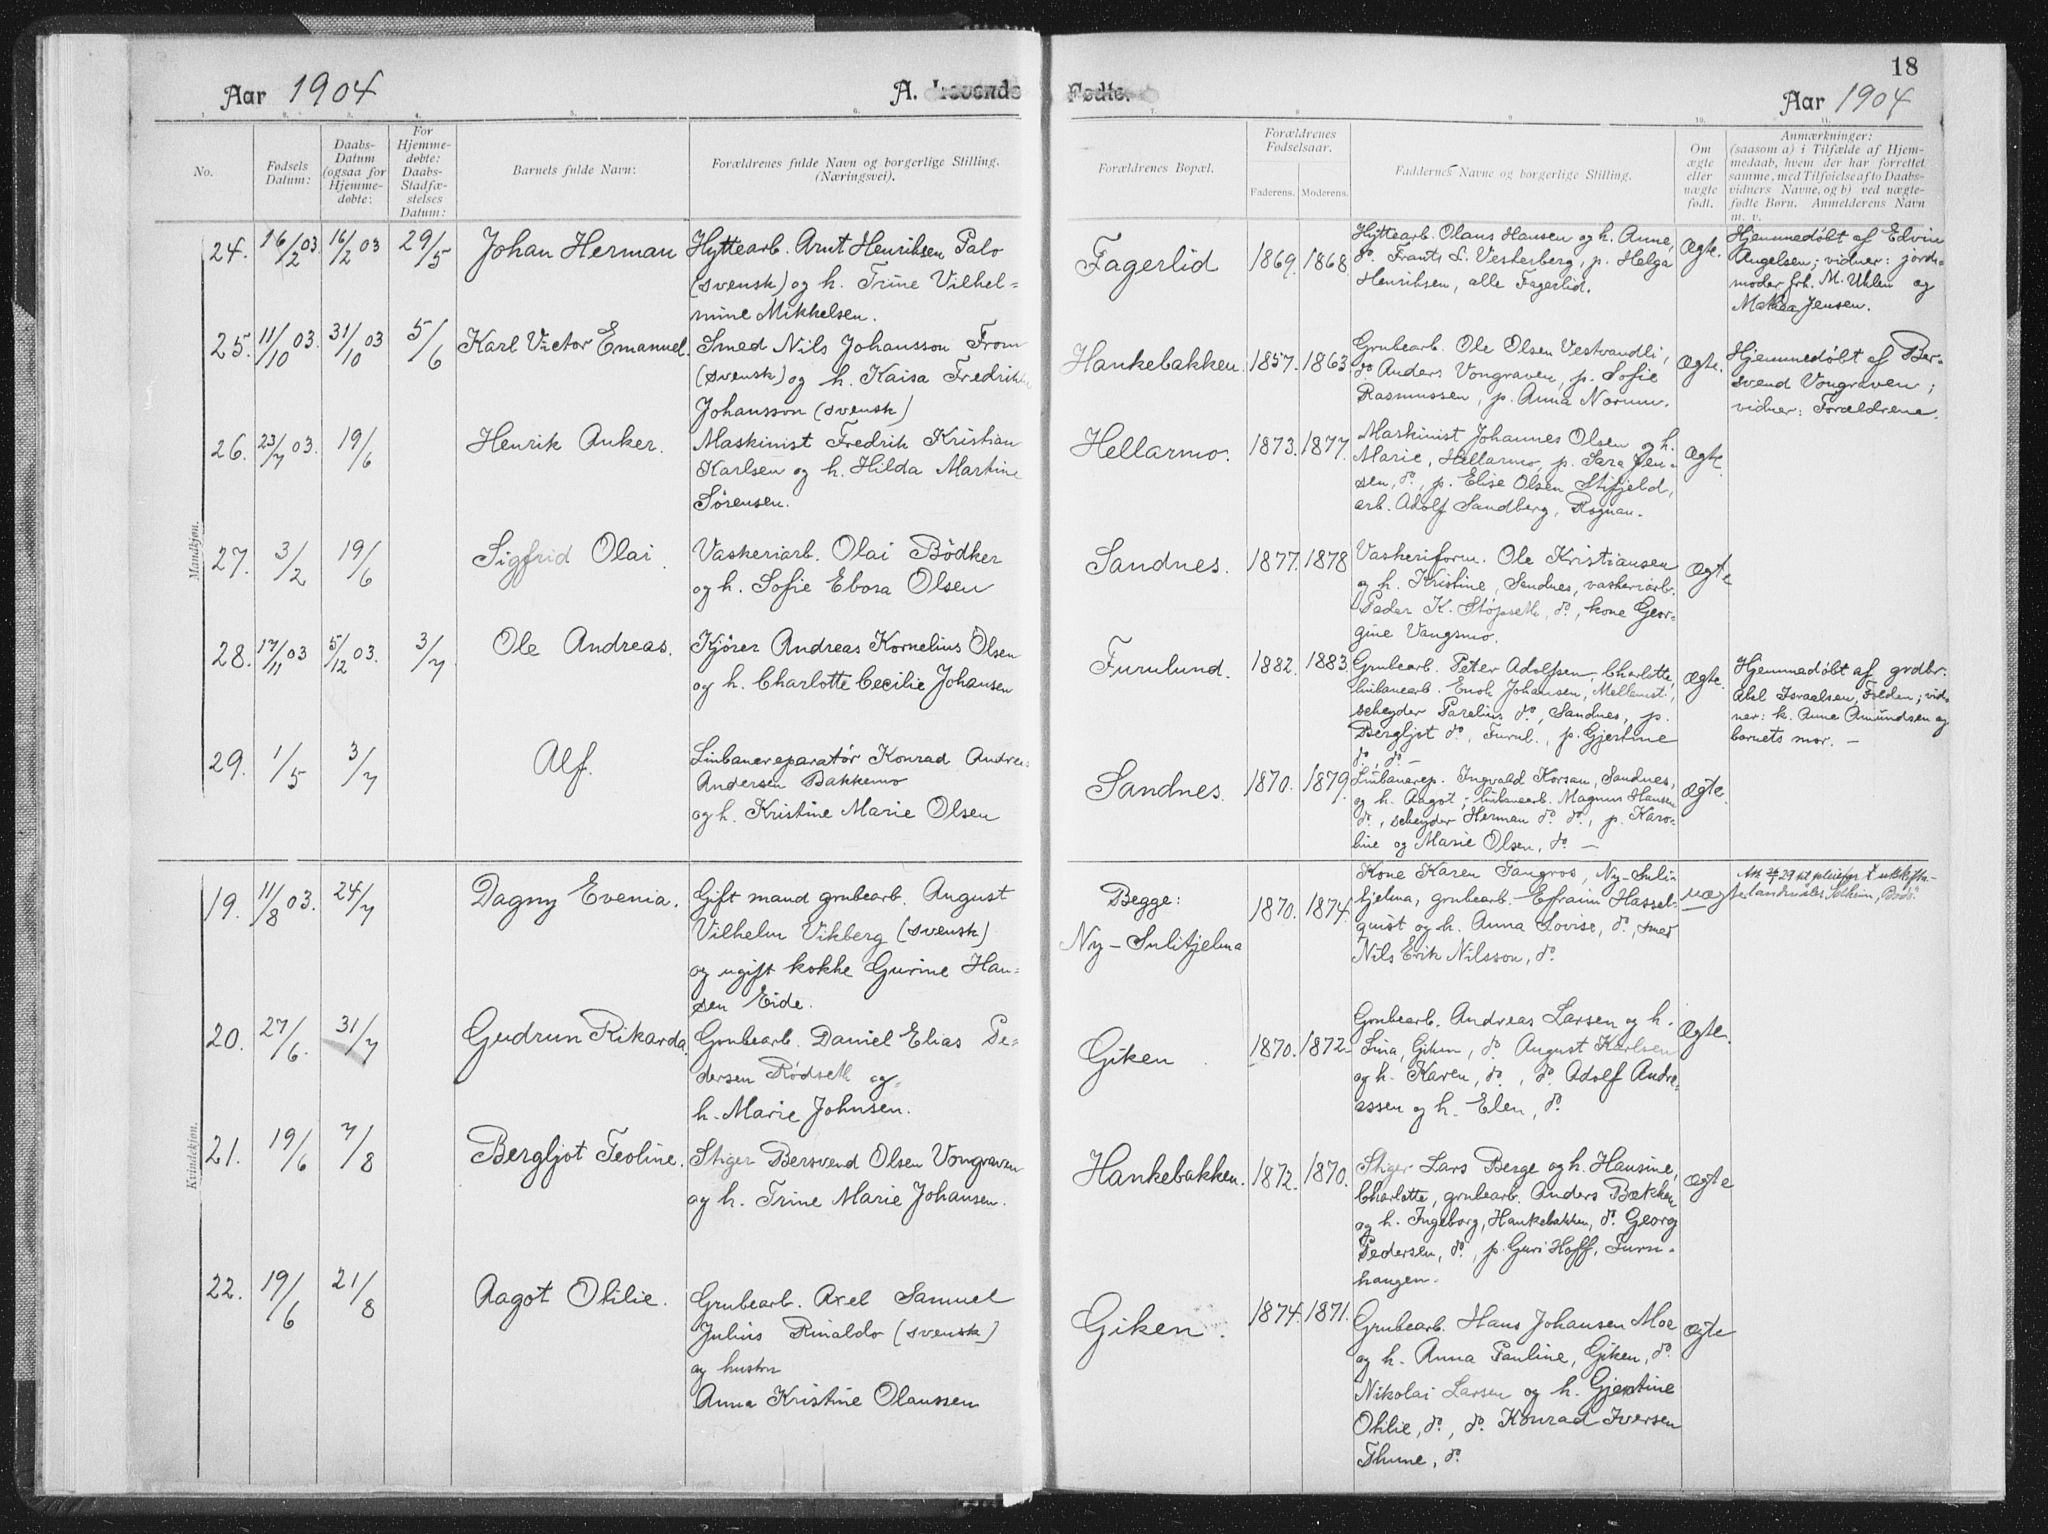 18
Aar 1904 A. Levende Fødte. Aar 1904
1. 2. 3. 4. 5. 6. 7. 8. 9. 10. 11.
No.
Fødsels
Datum:
Daabs-
Datum
(ogsaa for
Hjemme-
døbte:
For
Hjemme-
døbte:
Daabs-
Stadfæ-
stelses
Datum:
Barnets fulde Navn:
Forældrenes fulde Navn og borgerlige Stilling.
(Næringsvei).
Forældrenes Bopæl.
Forældrenes
Fødselsaar.
Faderens. Moderens.
Faddernes Navne og borgerlige Stilling.
Om
ægte
eller
uægte
født.
Anmærkninger:
(saasom a) i Tilfælde af Hjem-
medaab, hvem der har forrettet
samme, med Tilføielse af to Daabs-
vidners Navne, og b) ved uægte-
fødte Børn. Anmelderens Navn
m. v.
Mandkjøn.
24. 16/2 03 16/2 03 29/5 Johan Herman
Hyttearb. Arnt Henriksen Palo
(svensk) og h. Trine Vilhel-
mine Mikkelsen.
Fagerlid 1869. 1868.
Hyttearb. Olaus Hansen og h. Anne,
do. Frants L. Vesterberg, p. Helga
Henriksen, alle Fagerlid.
Ægte.
Hjemmedøbt af Edvin
Angelsen; vidner: jorde-
moder frk. M. Uhlen og
Jensen.
25. 11/10 03. 31/10 03 5/6 Karl Victor Emanuel.
Smed Nils Johansson From
(svensk) og h. Kaisa Fredrikke
Johansson (svensk)
Hankebakken. 1857. 1863
Grubearb. Ole Olsen Vestvandli,
do Anders Vongraven, p. Sofie
Rasmussen, p. Anna Norum.
Ægte.
Hjemmedøbt af Ber-
svend Vongraven;
vidner: Forældrene.
26. 23/7 03. 19/6 Henrik Anker.
Maskinist Fredrik Kristian
Karlsen og h. Hilda Martine
Sørensen.
Hellarmo. 1873. 1877.
Maskinist Johannes Olsen og h.
Marie, Hellarmo, p. Sara Jen-
sen, do., p. Elise Olsen Stifjeld,
arb. Adolf Sandberg, Rognan.
Ægte.
27. 3/2 19/6 Sigfrid Olai.
Vaskeriarb. Olai Bødker
og h. Sofie Ebora Olsen
Sandnes. 1877. 1878
Vaskeriform. Ole Kristiansen
og h. Kristine, Sandnes, vaskeriarb.
Peder K. Støpseth, do., kone Geor-
gine Vangsmo.
Ægte
28. 17/11 03 5/12 03. 3/7 Ole Andreas.
Kjører Andreas Kornelius Olsen
og h. Charlotte Cecilie Johansen
Furulund. 1882. 1883.
Grubearb. Peter Adolfsen, Charlotte,
linbanearb. Enok Johansen, Mellemst.,
scheyder Parelius do., Sandnes, p.
Bergljot do., Furul., p. Gjertine
do., do. —
Ægte.
Hjemmedøbt af grdbr.
Abel Israelsen, Folden; vid-
ner: k. Anne Amundsen og
barnets mor. —
29. 1/5 3/7 Alf.
Linbanereparatør Konrad Andreas
Andersen Bakkemo
og h. Kristine Marie Olsen
Sandnes. 1870. 1879.
Linbanerep. Ingvald Korsan, Sandnes,
og h. Aagot; linbanearb. Magnus Hansen
do., scheyder Herman do. do., p. Karo-
line og Marie Olsen, do. —
Ægte.
Kvindekjøn.
19. 11/8 03. 24/7 Dagny Evenia.
Gift mand grubearb. August
Vilhelm Vikberg (svensk)
og ugift kokke Gurine Han-
sen Eide.
Begge:
Ny-Sulitjelma 1870. 1874.
Kone Karen Tangros, Ny-Suli-
tjelma, grubearb. Efraim Hassel-
quist og h. Anna Lovise, do., smed
Nils Erik Nilsson, do.
uægte
20. 27/6. 31/7 Gudrun Rikarda.
Grubearb. Daniel Elias Pe-
dersen Rødseth og
h. Marie Johnsen.
Giken. 1870. 1872.
Grubearb. Andreas Larsen og h.
Lina, Giken, do. August Karlsen
og h. Karen, do., do. Adolf Andre-
assen og h. Elen, do.
Ægte.
21. 19/6 7/8 Bergljot Teoline.
Stiger Bersvend Olsen Vongraven
og h. Trine Marie Johansen.
Hankebakken. 1872. 1870.
Stiger Lars Berge og h. Hansine,
Charlotte, grubearb. Anders Bækken
og h. Ingeborg, Hankebakken, do. Georg
Pedersen, do., p. Guri Hoff, Furu-
haugen.
Ægte
22. 19/6 21/8 Aagot Otilie.
Grubearb. Axel Samuel
Julius Rinaldo (svensk)
og hustru
Anna Kristine Olaussen
Giken. 1874. 1871.
Grubearb. Hans Johansen Moe
og h. Anna Pauline, Giken, do.
Nikolai Larsen og h. Gjertine
Otilie, do., do. Konrad Iversen
Thune, do.
Ægte